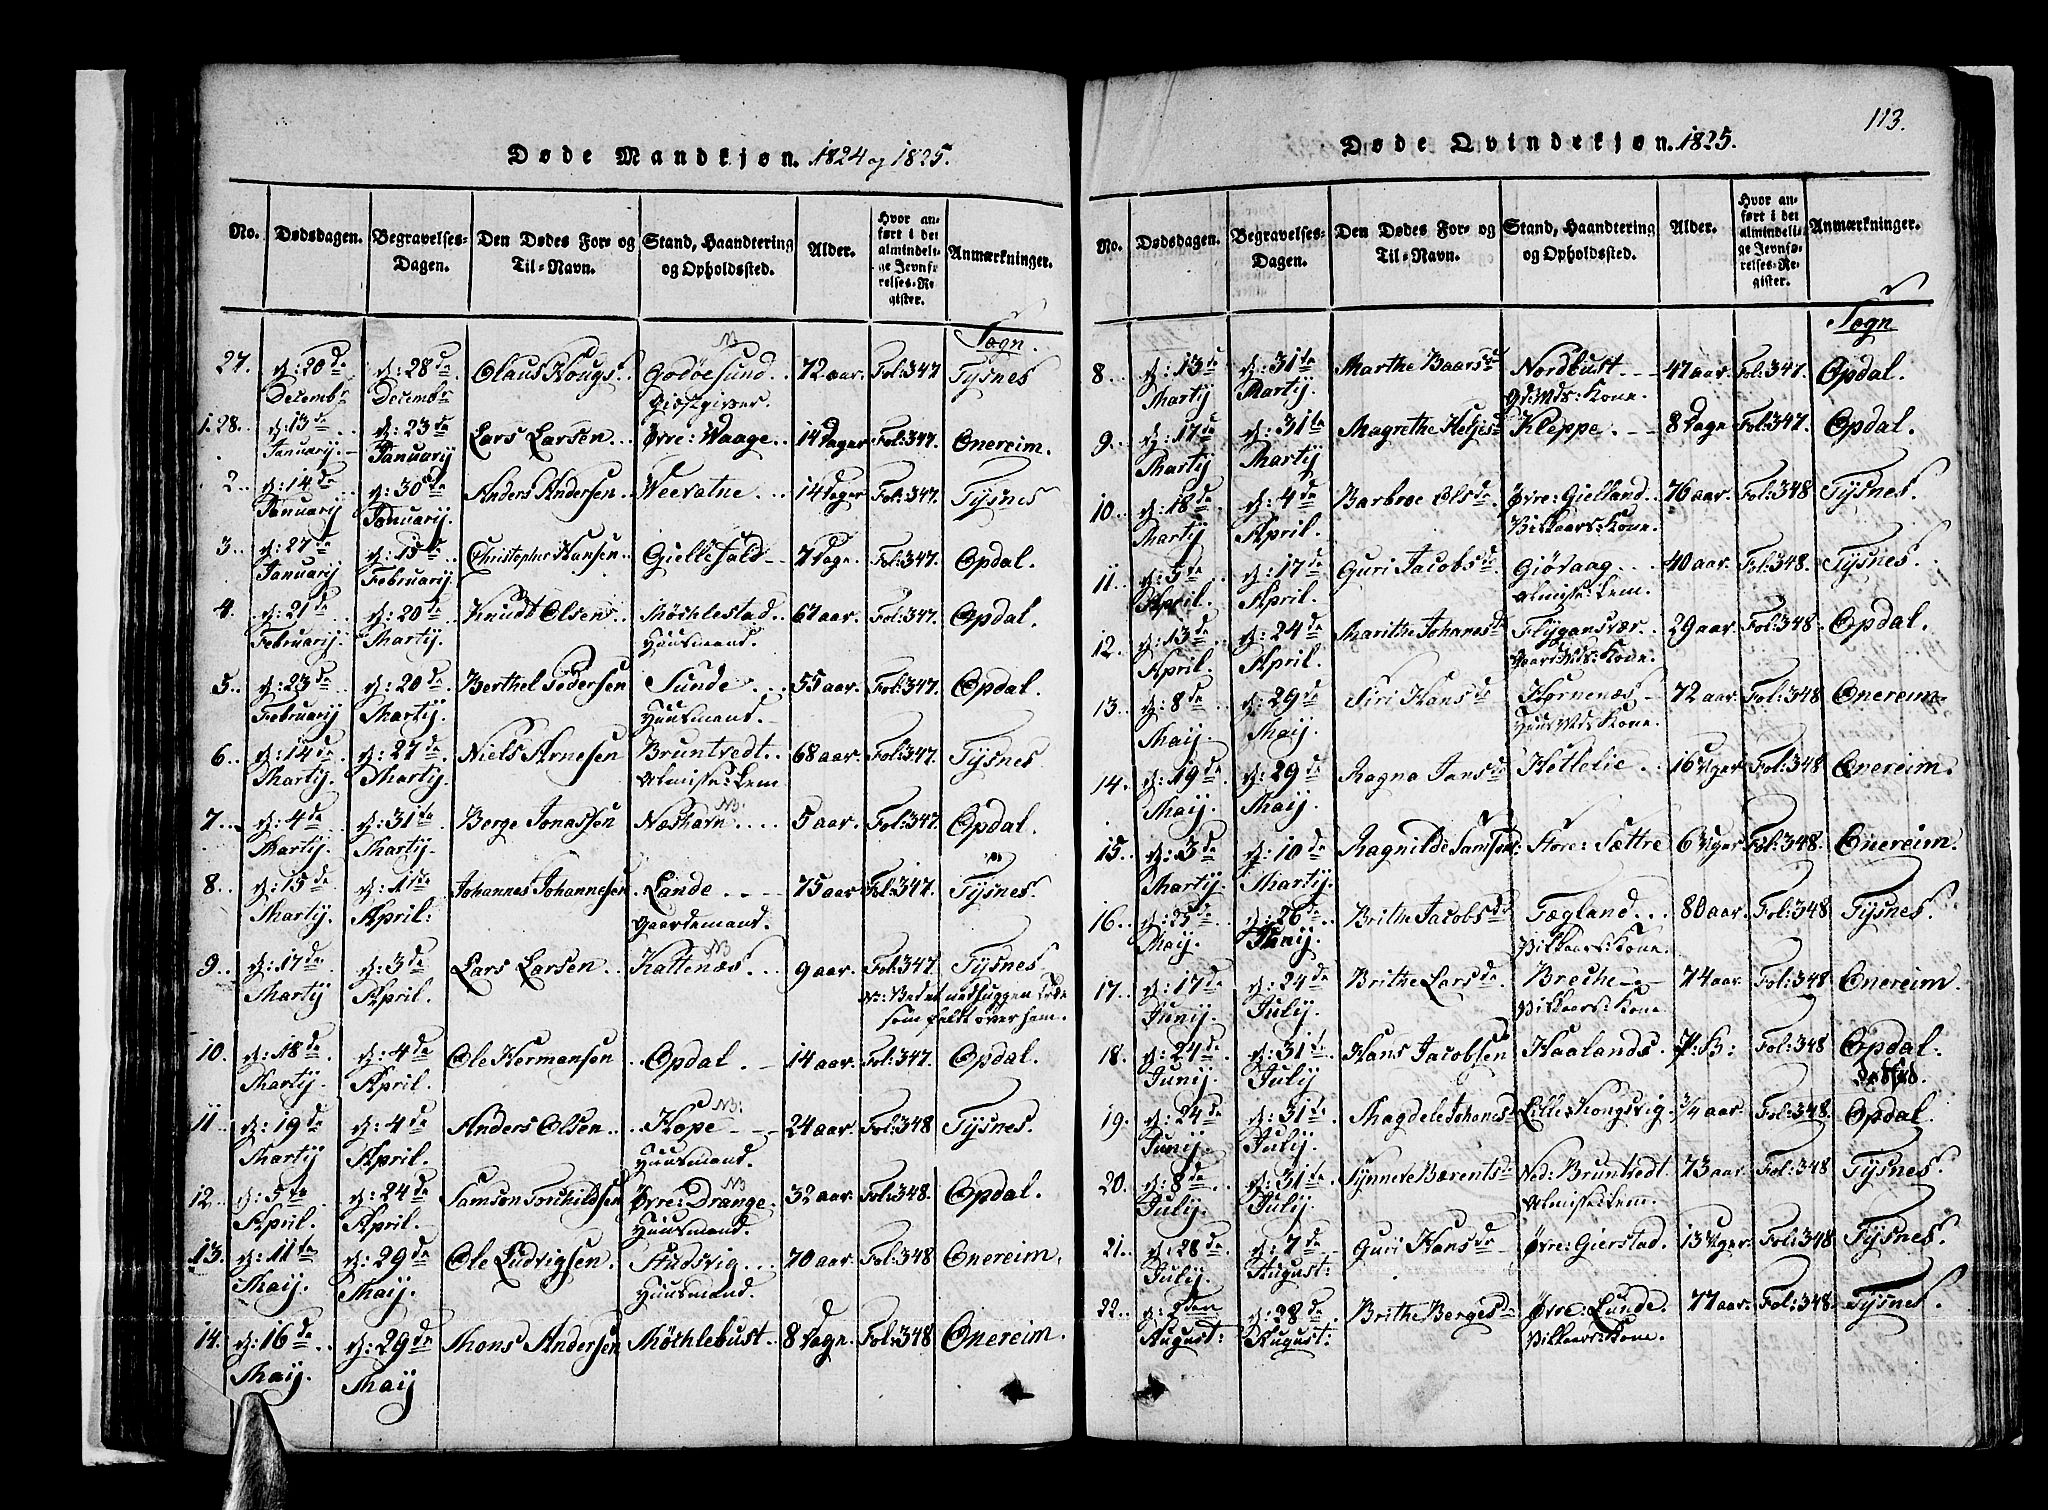 Døde Mandkjøn. 1824 og 1825.
No. Dødsdagen. Begravelses-Dagen. Den Dødes For- og Til-Navn. Stand, Haandtering og Opholdssted. Alder. Hvor anført i det almindelige Jevnførelses-Register. Anmærkninger.
Sogn.
27. d: 20de d: 28de Claus Hougs. Godøesund. 72 aar. Fol: 347 Tysnes
Decembr Decembr Giæstgiver.
1.28. d: 13de d: 23de Lars Larsen. Øvre: Waage. 14 Dager Fol: 347. Onereim.
Januarij. Januarij
2. d: 14de d: 30de Anders Andersen. Weevatne. 14 Dager Fol: 347. Tysnes
Januarij Januarij.
3. d: 27de d: 15de Christopher Hansen. Giellesald 7 Dage. Fol: 347. Opdal.
Januarij Februarij.
4. d: 21de d: 20de Knudt Olsen. Møchlestad 67 aar. Fol: 347. Opdal.
Februarij Martij. Huusmand.
5. d: 23de d: 20de Berthel Pedersen Sunde. 55 aar. Fol: 347. Opdal.
Februarij Martij. Huusmand.
6. d: 14de d: 27de Niels Arnesen Bruntvedt. 68 aar. Fol: 347. Tysnes
Martij. Martij. Almisse: Lem
NB:
7. d: 4de d: 31te Berge Jonassen Næshavn. 5 aar. Fol: 347. Opdal.
Martij. Martij.
8. d: 15de d: 1ste Johannes Johannesen Lande. 75 aar Fol: 347. Tysnes.
Martij. April: Gaardemand.
NB
9. d: 17de d: 3de Lars Larsen. Hattenæs. 9 aar. Fol: 347. Tysnes
Martij April. NB: Bedet nedhuggen
som faldt over ham.
10. d: 18de d: 4de Ole Hermansen Opdal. 14 aar. Fol: 347. Opdal.
Martij. April.
NB:
11. d: 19de d: 4de Anders Olsen Hope 24 aar. Fol: 348 Tysnes.
Martij April. Huusmand.
NB
12. d: 5te d: 24de Samson Torchildsen Øvre: Drange. 32 aar Fol: 348. Opdal.
April. April. Huusmand.
13. d: 11te d: 29de Ole Ludvigsen. Hudsvig. 70 aar Fol: 348 Onereim.
Maij. Maij. Huusmand.
14. d: 16de d: 29de Mons Andersen Møchlebust. 8 Dage. Fol: 348 Onereim.
Maij. Maij
113.
Døde Qvindekjøn. 1825.
No. Dødsdagen. Begravelses-Dagen. Den Dødes For- og Til-Navn. Stand, Haandtering og Opholdssted. Alder. Hvor anført i det almindelige Jevnførelses-Register. Anmærkninger.
Sogn
8. d: 13de d: 31te Marthe Baarsd Nordbust 47 aar Fol: 347. Opdal.
Martij Martij. Gdmds: Kone.
9. d: 17de d: 31te Magrethe Helgesd Kleppe. 8 Dage Fol: 347. Opdal.
Martij Martij
10. d: 18de d: 4de Barbroe Olsde Øvre: Gielland. 76 aar. Fol: 348 Tysnes.
Martij April. Vilkaars: Kone.
11. d: 5te d: 17de Guri Jacobsd. Giøraag. 40 aar. Fol: 348. Tysnes
April. April. Almisse: Lem.
12. d: 13de d: 24de Marithe Johanesd Flygansvær. 29 aar. Fol: 348. Opdal.
April. April. Gaardmds: Kone.
13. d: 8de d: 29de Siri Hansd Hornenæs 72 aar. Fol: 348 Onereim
Maij. Maij. Huusmds: Kone.
14. d: 19de d: 29de Ragna Jansd Hetlelie. 16 Uger Fol: 348 Onereim.
Maij. Maij.
15. d: 3de d: 10de Ragnilde Samsond: Store: Sættre 6 Uger Fol: 348. Onereim.
Martij Martij.
16. d: 25de d: 26de Brithe Jacobsd Tægland. 80 aar. Fol: 348 Tysnes.
Maij. Junij. Vilkaars: Kone.
17. d: 17de d: 24de Brithe Larsde Breche 74 aar. Fol: 348 Onereim.
Junij. Julij. Vilkaars: Kone
18. d: 24de d: 31te Hans Jacobsen Haalands. P: B: Fol: 348 Opdal.
Junij. Julij Dødfød.
19. d: 24de d: 31te Magdele Johanesd Lille: Kongsvig 3/4 aar. Fol: 348 Opdal
Junij. Julij.
20. d: 8de d: 31te Synneve Bærentsd Ned: Bruntvedt. 73 aar. Fol: 348 Tysnes.
Julij. Julij. Almisse: Lem.
21. d: 28de d: 7de Guri Hansde Øvre: Gierstad. 13 Uger Fol: 348 Tysnes.
Julij. August:
22. d: 2den d: 28de Brithe Bergesde Øvre: Lunde. 77 aar. Fol: 348. Tysnes.
August: August: Vilkaars: Kone.